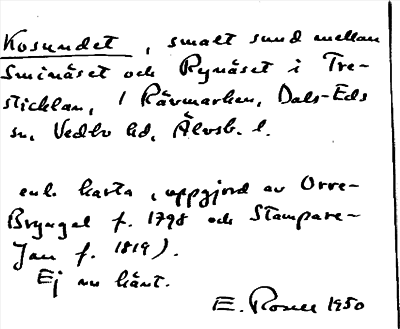 Kosundet, smalt sund mellan
Svinäset och Rynäset i Tre-
sticklan, i Rävmarken, Dals-Eds
sn, Vedbo hd, Älvsb. l.
enl. karta, uppgjord av Orre-
Bryngel f. 1798 och Stampare-
Jan f. 1819).
Ej nu känt.
E. Rosell 1950